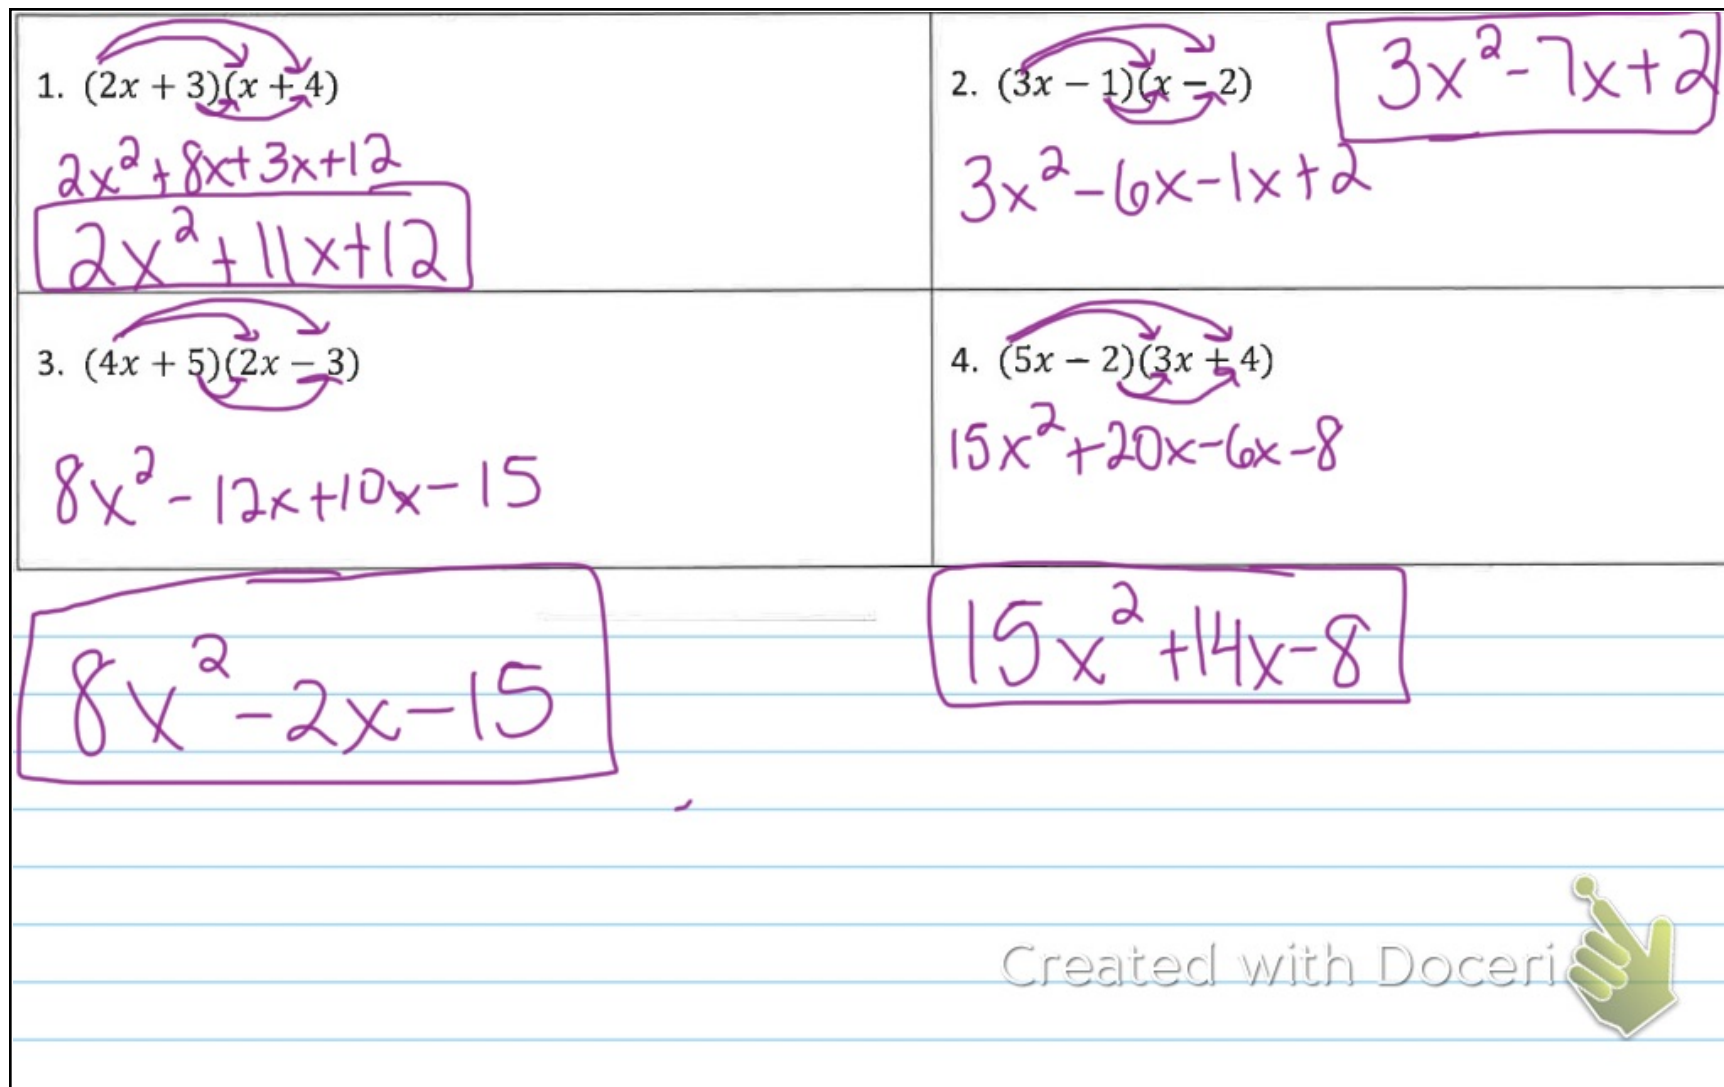 1. (2x + 3)(x + 4)
2x² + 8x + 3x + 12
2x² + 11x + 12
2. (3x − 1)(x − 2)
3x² - 7x + 2
3x² - 6x - 1x + 2
3. (4x + 5)(2x − 3)
8x² - 12x + 10x - 15
8x² - 2x - 15
4. (5x − 2)(3x + 4)
15x² + 20x - 6x - 8
15x² + 14x - 8
Created with Doceri